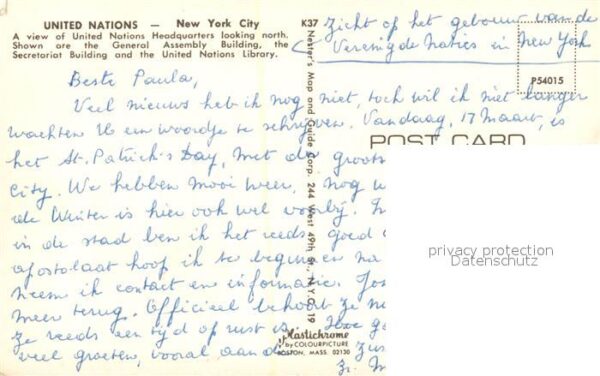 UNITED NATIONS — New York City
A view of United Nations Headquarters looking north.
Shown are the General Assembly Building, the
Secretariat Building and the United Nations Library.
K37
Nester's Map and Guide Corp. 244 West 49th St., N.Y.C. 19
Zicht op het gebouw van de
Verenigde Naties in New York
P54015
POST CARD
Beste Paula,
Veel nieuws heb ik nog niet, toch wil ik niet langer
wachten U een woordje te schrijven. Vandaag, 17 Maart, is
het St. Patrick's Day, met de groots
City. We hebben mooi weer, nog
de Winter is hier ook wel voorbij.
in de stad ben ik het reeds goed
apostolaat hoop ik te beginnen na
neem ik contact en informatie.
meer terug. Officieel behoort ze
ze reeds een tijd op rust is. Hoe
veel groeten, vooral aan
Plastichrome
by COLOURPICTURE
BOSTON, MASS. 02130
privacy protection
Datenschutz